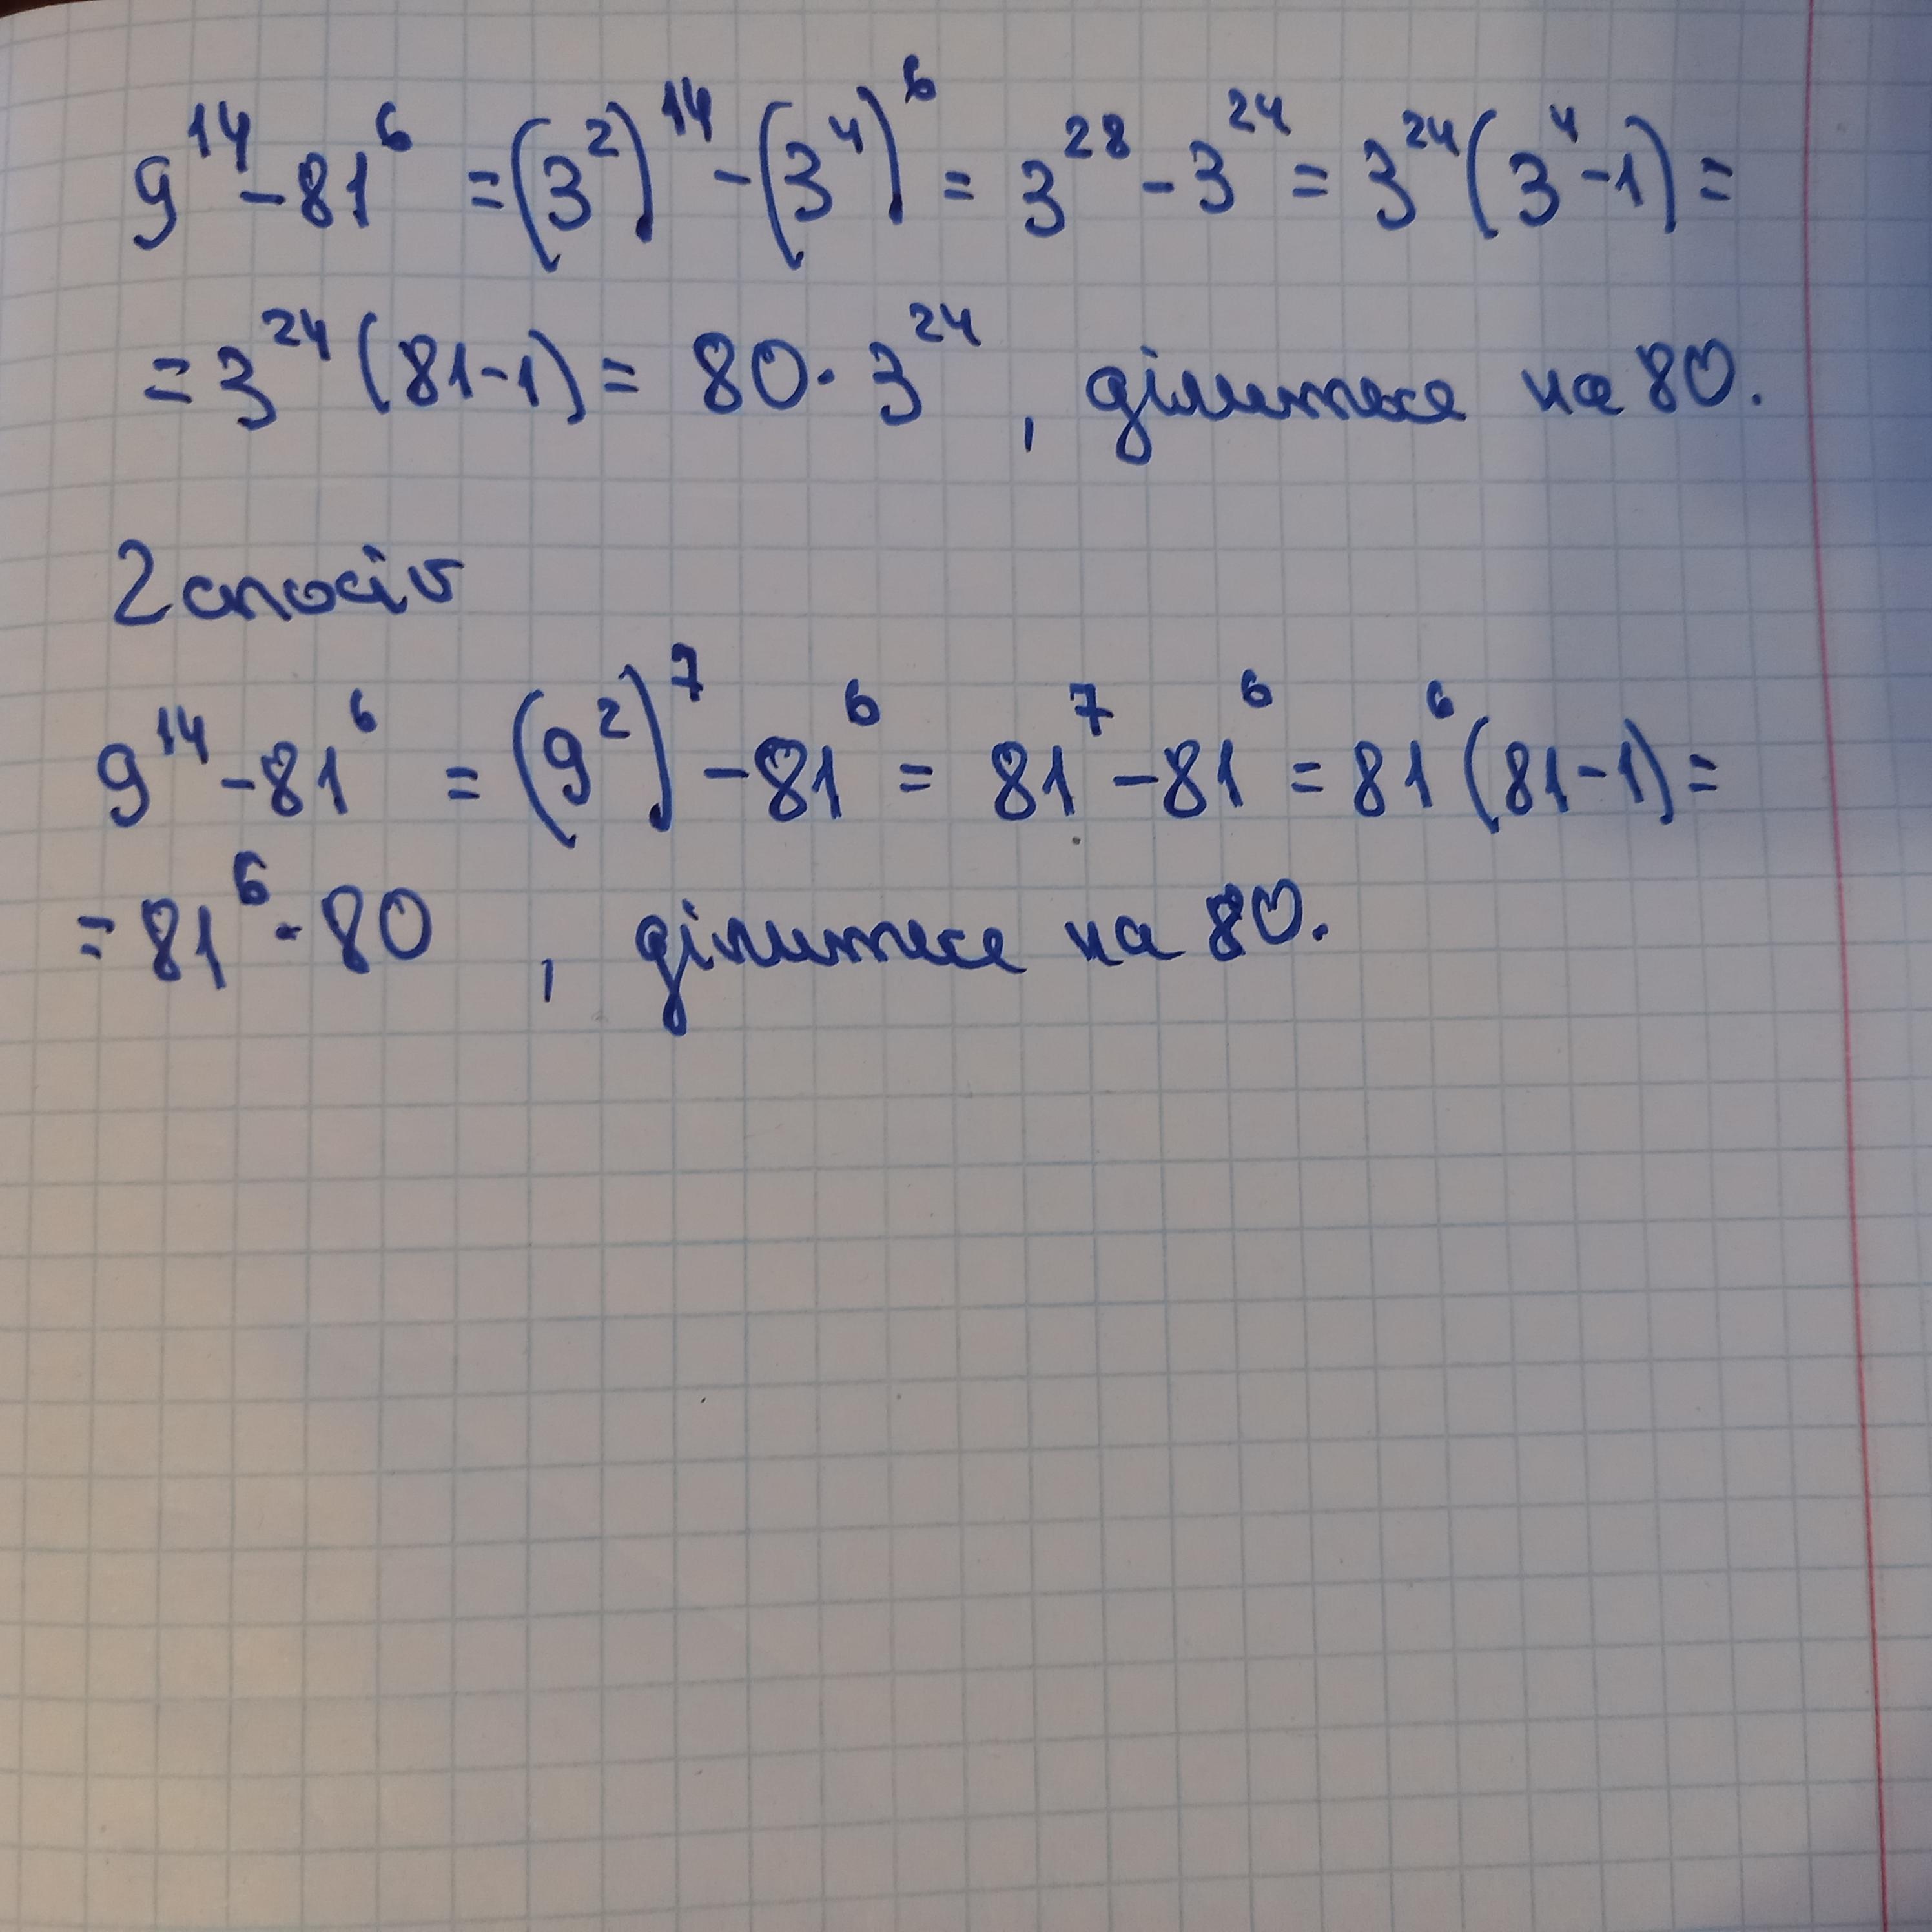 9¹⁴-81⁶ =(3²)¹⁴ -(3⁴)⁶ = 3²⁸ - 3²⁴ = 3²⁴(3⁴-1)=
= 3²⁴ (81-1)= 80· 3²⁴ , ділиться на 80.
2 спосів
9¹⁴ -81⁶ = (9²)⁷ -81⁶ = 81⁷ -81⁶ = 81⁶ (81-1)=
= 81⁶ · 80 , ділиться на 80.